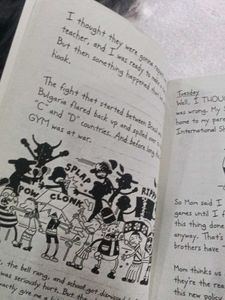 I thought they were gonna
teacher, and I was ready to make
But then something happened that
hook.
The fight that started between Brazil and
Bulgaria flared back up and spilled over
"C" and "D" countries. And before long the
GYM was at war.
SPLAT
RIPP
POW
CLONK
the bell rang, and school got dismissed
was seriously hurt. But
exactly give me a
Tuesday
Well, I THOU
was wrong. My
home to my paren
International S
So Mom said I
games until I f
this thing done
anyway. That's
brothers have
Mom thinks us
they're the rea
this new policy